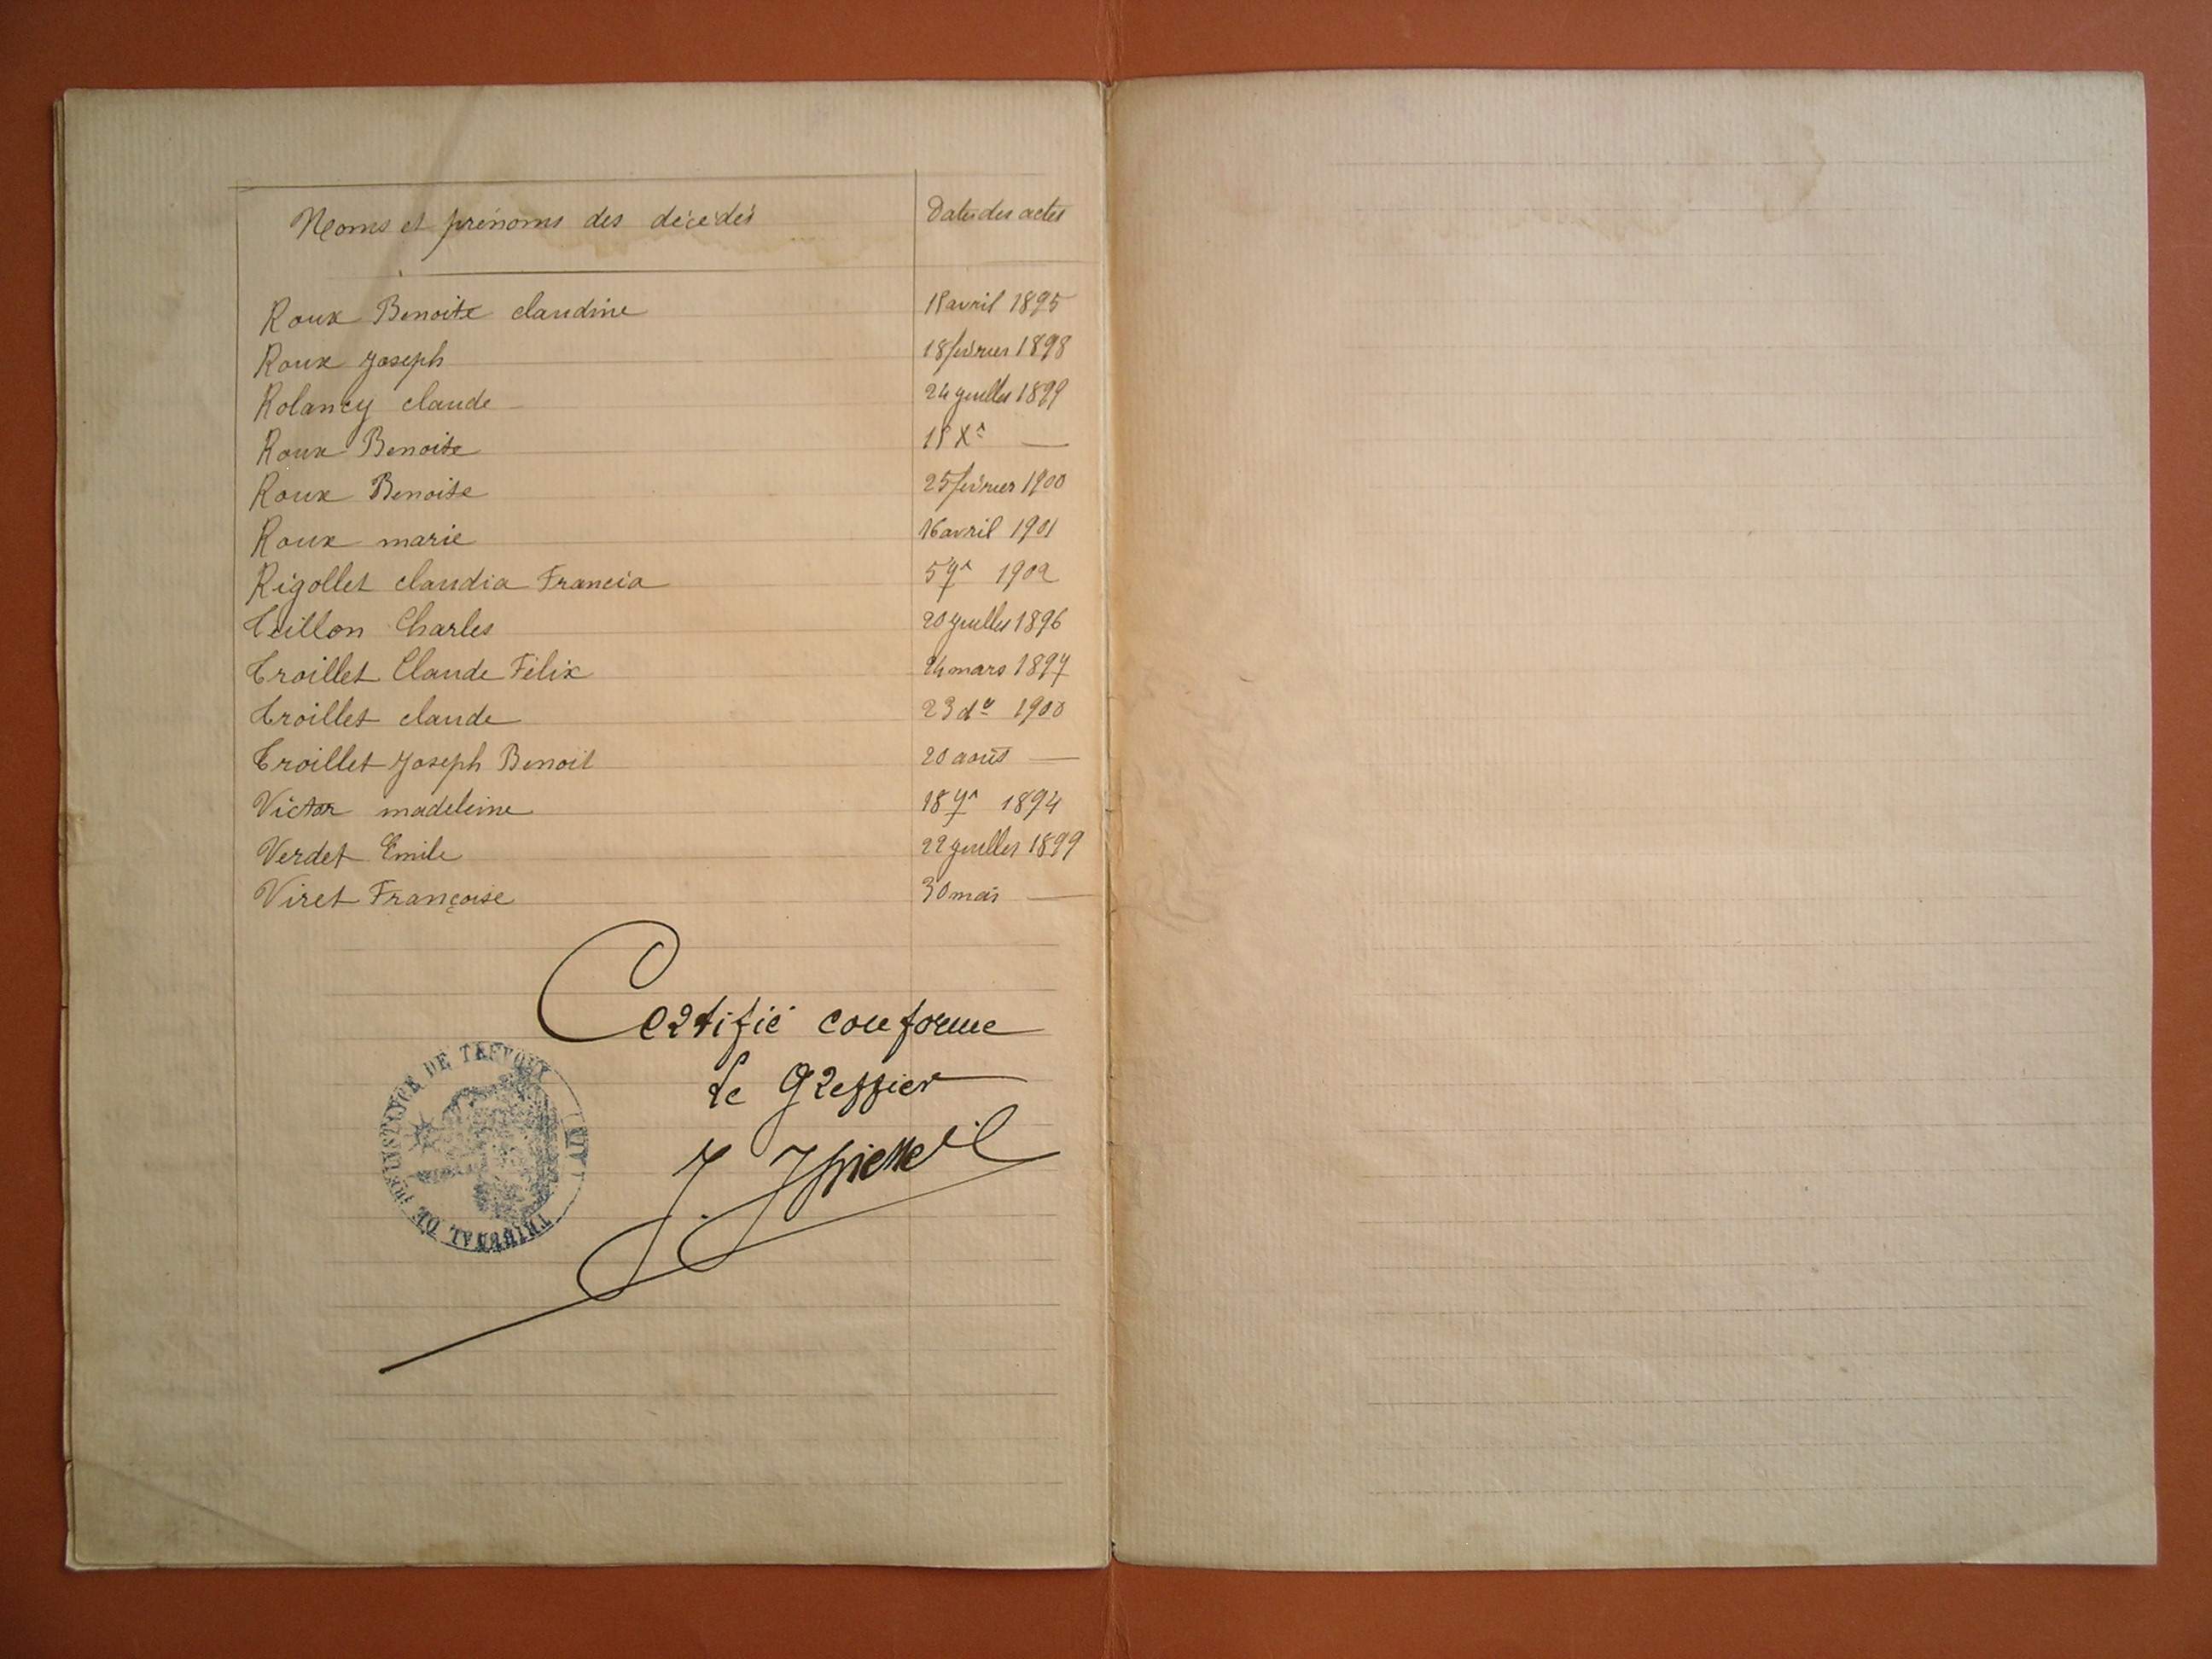 Noms et prénoms des décédés Dates des actes
Roux Benoite claudine avril 1895
Roux Joseph 18 février 1898
Rolancy claude 24 juillet 1899
Roux Benoite Xᵉ —
Roux Benoite 25 février 1900
Roux marie 16 avril 1901
Rigollet claudia Francia 5 7ʳ 1902
Teillon Charles 20 juillet 1896
Troillet Claude Félix 24 mars 1897
Troillet claude 23 dº 1900
Troillet Joseph Benoit 20 août —
Victor madeleine 18 7ʳ 1894
Verdet Emile 22 juillet 1899
Viret Françoise 30 mai —
Certifié conforme
Le Greffier
TRIBUNAL DE 1ʳᵉ INSTANCE DE TREVOUX (AIN)